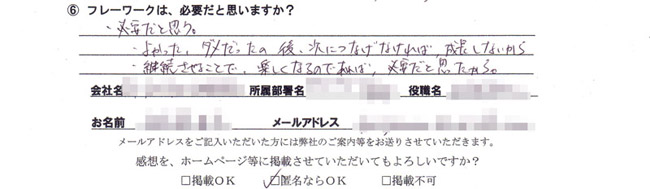 ⑥ フレーワークは、必要だと思いますか？
・必要だと思う。
・よかった、ダメだったの後、次につなげなければ、成長しないから
・継続させることで、楽しくなるのであれば、必要だと思ったから。
会社名 所属部署名 役職名
お名前 メールアドレス
メールアドレスをご記入いただいた方には弊社のご案内等をお送りさせていただきます。
感想を、ホームページ等に掲載させていただいてもよろしいですか？
□掲載ＯＫ ☑匿名ならＯＫ □掲載不可